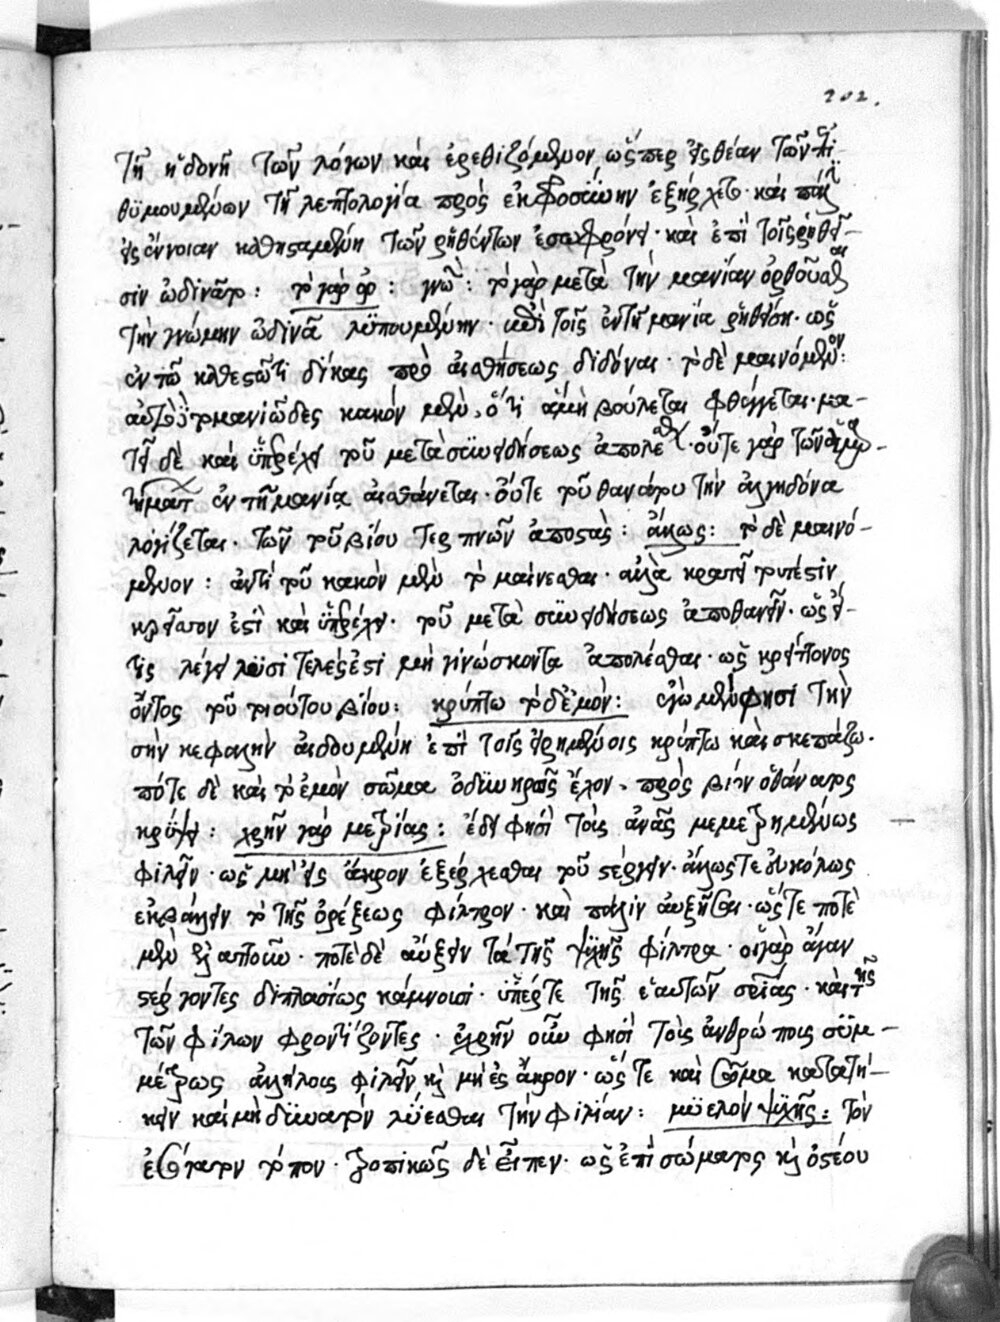 202.
τῇ ἡδονῇ τῶν λόγων καὶ ἐρεθιζόμενον, ὥσπερ εἰς θέαν τῶν ἐπι-
θυμουμένων τῇ λεπτολογία πρὸς ἐκφροσύνην ἐξήρχετο· καὶ πάλιν
εἰς ἔννοιαν καθισταμένη τῶν ῥηθέντων ἐσωφρόνει· καὶ ἐπὶ τοῖς ῥηθεῖ-
σιν ὠδίνατο: τὸ γὰρ ὀρ: γνώ: τὸ γὰρ μετὰ τὴν μανίαν ὀρθοῦσθαι
τὴν γνώμην ὠδῖνα λυπουμένην· ἐπὶ τοῖς ἐν τῇ μανία ῥηθεῖσι· ὡς
ἐν τῷ καθεστῶτι δίκας πρὸ αἰσθήσεως διδόναι· τὸ δὲ μαινόμενον:
αὐτὸ τὸ μανιῶδες κακόν μὲν, ὅτι ἃ μὴ βούλεται φθέγγεται· μα-
τεῖ δὲ καὶ ὑπερέχει τοῦ μετὰ συνειδήσεως ἀπολέσθαι· οὔτε γὰρ τῶν
ἐν τῇ μανία αἰσθάνεται· οὔτε τοῦ θανάτου τὴν ἀλγηδόνα
λογίζεται· τῶν τοῦ βίου τερπνῶν ἀποστάς: ἄλλως: τὸ δὲ μαινό-
μενον: ἀντὶ τοῦ κακὸν μὲν τὸ μαίνεσθαι· ἀλλὰ κρατεῖ τουτέστιν
κρεῖττον ἐστὶ καὶ ὑπερέχει· τοῦ μετὰ συνειδήσεως ἀποθανεῖν· ὡς εἴ-
τις λέγει λυσιτελές ἐστι μὴ γινώσκοντα ἀπολέσθαι· ὡς κρείττονος
ὄντος τοῦ τοιούτου βίου: κρύπτω τὸ δ' ἐμόν: ἐγὼ μὲν φησὶ τὴν
σὴν κεφαλὴν αἰδουμένη ἐπὶ τοῖς εἰρημένοις κρύπτω καὶ σκεπάζω·
πότε δὲ καὶ τὸ ἐμὸν σῶμα ὀδυνηρῶς ἔχον, πρὸς βίαν ὁ θάνατος
κρύψει: χρῆν γὰρ μετρίας: ἔδει φησὶ τοὺς ἀνοὺς μεμετρημένως
φιλεῖν· ὡς μὴ εἰς ἄκρον ἐξέρχεσθαι τοῦ στέργειν· ἄλλως τε εὐκόλως
ἐκβάλλειν τὸ τῆς ὀρέξεως φίλτρον· καὶ πάλιν αὐξῆσαι· ὥστε ποτὲ
μὲν ἐλαττοῦν· ποτὲ δὲ αὔξειν τὰ τῆς ψυχῆς φίλτρα· οἱ γὰρ ἄγαν
στέργοντες διπλασίως κάμνουσι· ὑπέρ τε τῆς ἑαυτῶν σωτηρίας· καὶ τῆς
τῶν φίλων φροντίζοντες· ἐχρῆν οὖν φησὶ τοὺς ἀνθρώπους συμ-
μέτρως ἀλλήλοις φιλεῖν καὶ μὴ ἐς ἄκρον· ὥστε καὶ σῶμα κατατή-
κειν καὶ μὴ δύνασθαι λύεσθαι τὴν φιλίαν: μυελὸν ψυχῆς: τὸν
ἐσώτατον τόπον· τροπικῶς δὲ εἶπεν· ὡς ἐπὶ σώματος καὶ ὀστέου